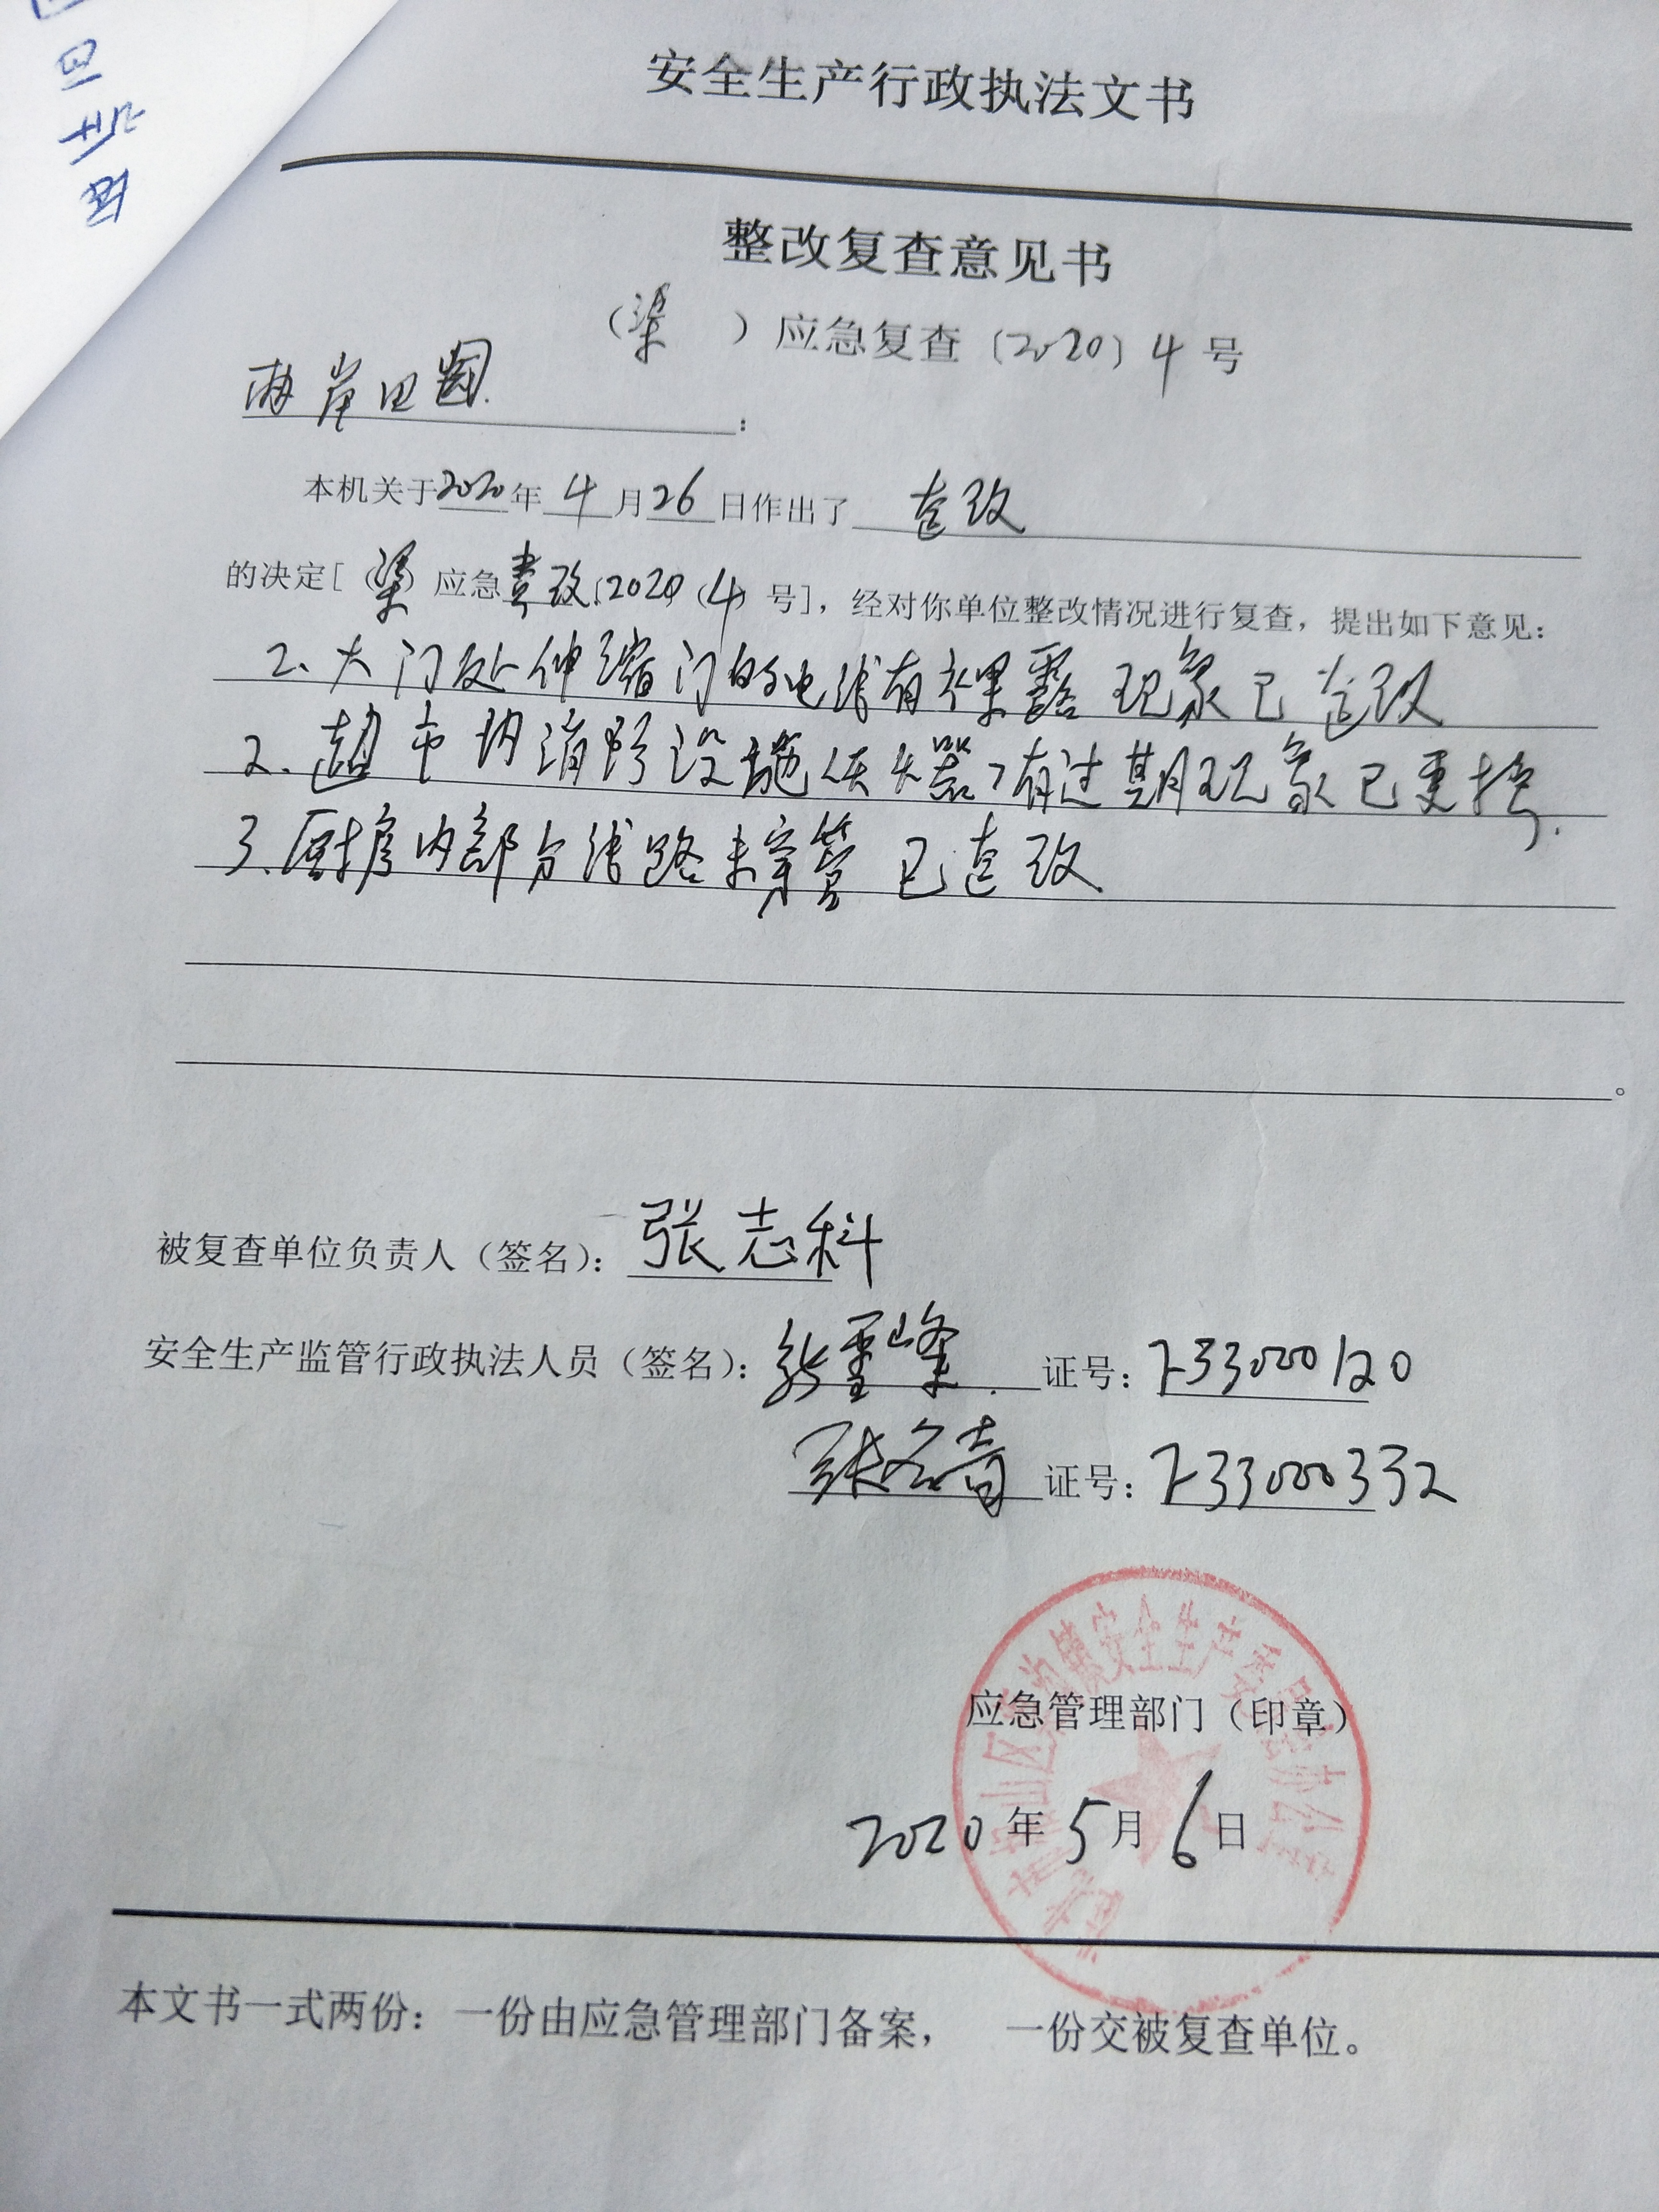 安全生产行政执法文书
整改复查意见书
（梁）应急复查〔2020〕4号
两岸田园：
本机关于2020年4月26日作出了 查改
的决定[（梁）应急责改〔2020〕（4）号]，经对你单位整改情况进行复查，提出如下意见：
2、大门处伸缩门的电线有裸露现象已查改
2、超市内消防设施(灭火器)有过期现象已更换.
3、厨房内部分线路未穿管 已查改.
被复查单位负责人（签名）：张志科
安全生产监管行政执法人员（签名）： 证号：733000120
证号：733000332
应急管理部门（印章）
2020年5月6日
本文书一式两份：一份由应急管理部门备案， 一份交被复查单位。